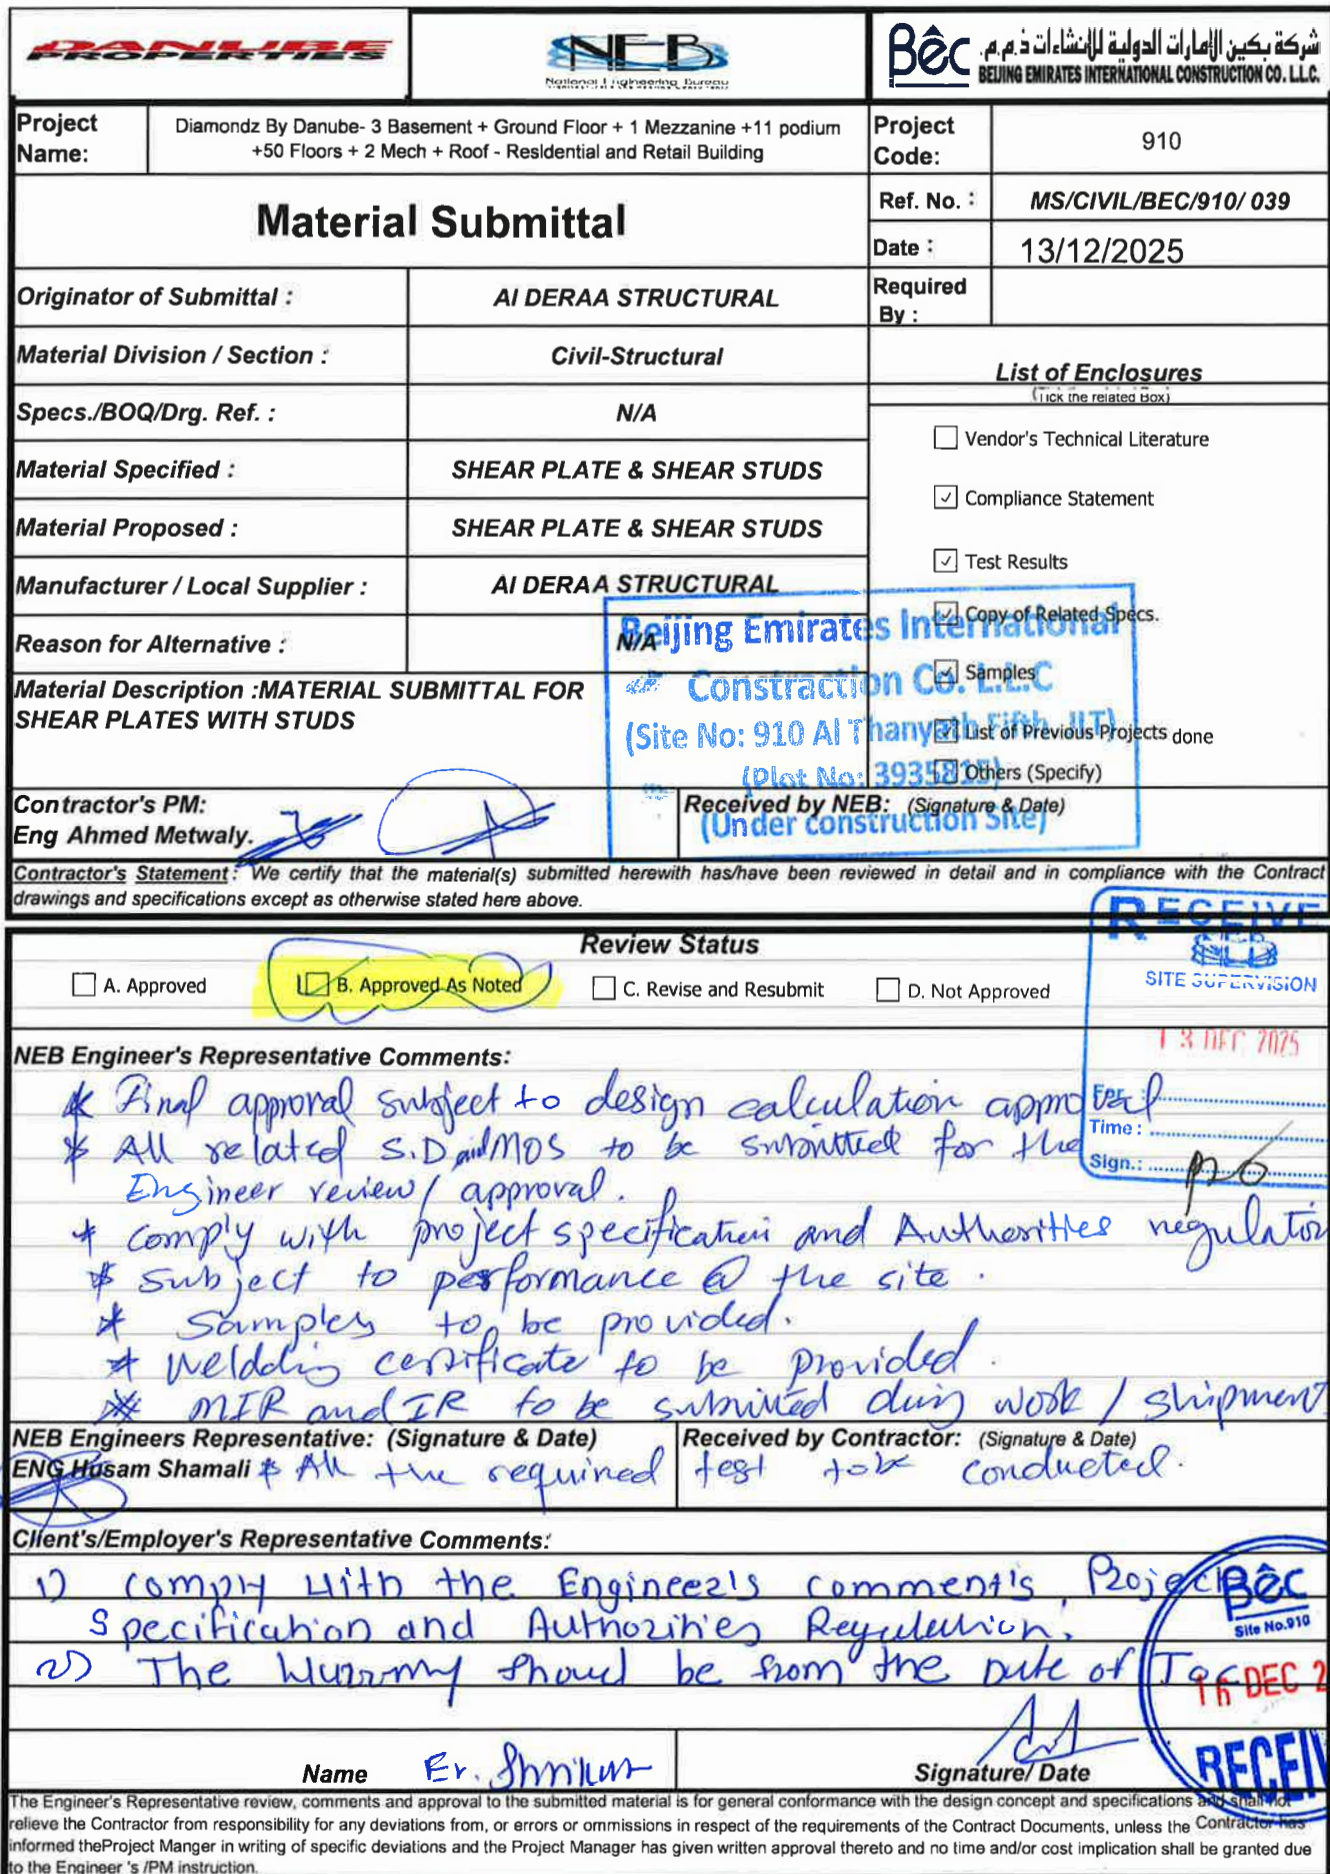 DANUBE
PROPERTIES
NEB
National Engineering Bureau
Bêc شركة بكين الإمارات الدولية للإنشاءات ذ.م.م.
BEIJING EMIRATES INTERNATIONAL CONSTRUCTION CO. L.L.C.
Project Name:
Diamondz By Danube- 3 Basement + Ground Floor + 1 Mezzanine +11 podium
+50 Floors + 2 Mech + Roof - Residential and Retail Building
Project Code:
910
Material Submittal
Ref. No. : MS/CIVIL/BEC/910/ 039
Date : 13/12/2025
Originator of Submittal : Al DERAA STRUCTURAL
Required By :
Material Division / Section : Civil-Structural
Specs./BOQ/Drg. Ref. : N/A
Material Specified : SHEAR PLATE & SHEAR STUDS
Material Proposed : SHEAR PLATE & SHEAR STUDS
Manufacturer / Local Supplier : Al DERAA STRUCTURAL
Reason for Alternative : N/A
Material Description :MATERIAL SUBMITTAL FOR
SHEAR PLATES WITH STUDS
List of Enclosures
(Tick the related Box)
Vendor's Technical Literature
Compliance Statement
Test Results
Copy of Related Specs.
Samples
List of Previous Projects done
Others (Specify)
Beijing Emirates International
Constraction Co. L.L.C
(Site No: 910 Al Thanyath Fifth, JLT)
(Plot No: 3935815)
(Under construction Site)
Contractor's PM:
Eng Ahmed Metwaly.
Received by NEB: (Signature & Date)
Contractor's Statement: We certify that the material(s) submitted herewith has/have been reviewed in detail and in compliance with the Contract
drawings and specifications except as otherwise stated here above.
RECEIVE
SITE SUPERVISION
13 DEC 2025
Time :
Sign.:
Review Status
A. Approved
B. Approved As Noted
C. Revise and Resubmit
D. Not Approved
NEB Engineer's Representative Comments:
* Final approval subject to design calculation approval
* All related S.D and MOS to be submitted for the
Engineer review/ approval.
* comply with project specification and Authorities regulation
* subject to performance @ the site.
* Samples to be provided.
* Welddig certificate to be provided.
* MIR and IR to be submitted during work / shipment
NEB Engineers Representative: (Signature & Date)
Received by Contractor: (Signature & Date)
ENG Husam Shamali * All the required test to be conducted.
Client's/Employer's Representative Comments:
1) Comply with the Engineer's comment's, Project
Specification and Authorities Regulation.
2) The should be from the Date of
Bêc
Site No.910
16 DEC 2
RECEIV
Name Er.
Signature/ Date
The Engineer's Representative review, comments and approval to the submitted material is for general conformance with the design concept and specifications and shall not
relieve the Contractor from responsibility for any deviations from, or errors or ommissions in respect of the requirements of the Contract Documents, unless the Contractor has
informed theProject Manger in writing of specific deviations and the Project Manager has given written approval thereto and no time and/or cost implication shall be granted due
to the Engineer 's /PM instruction.